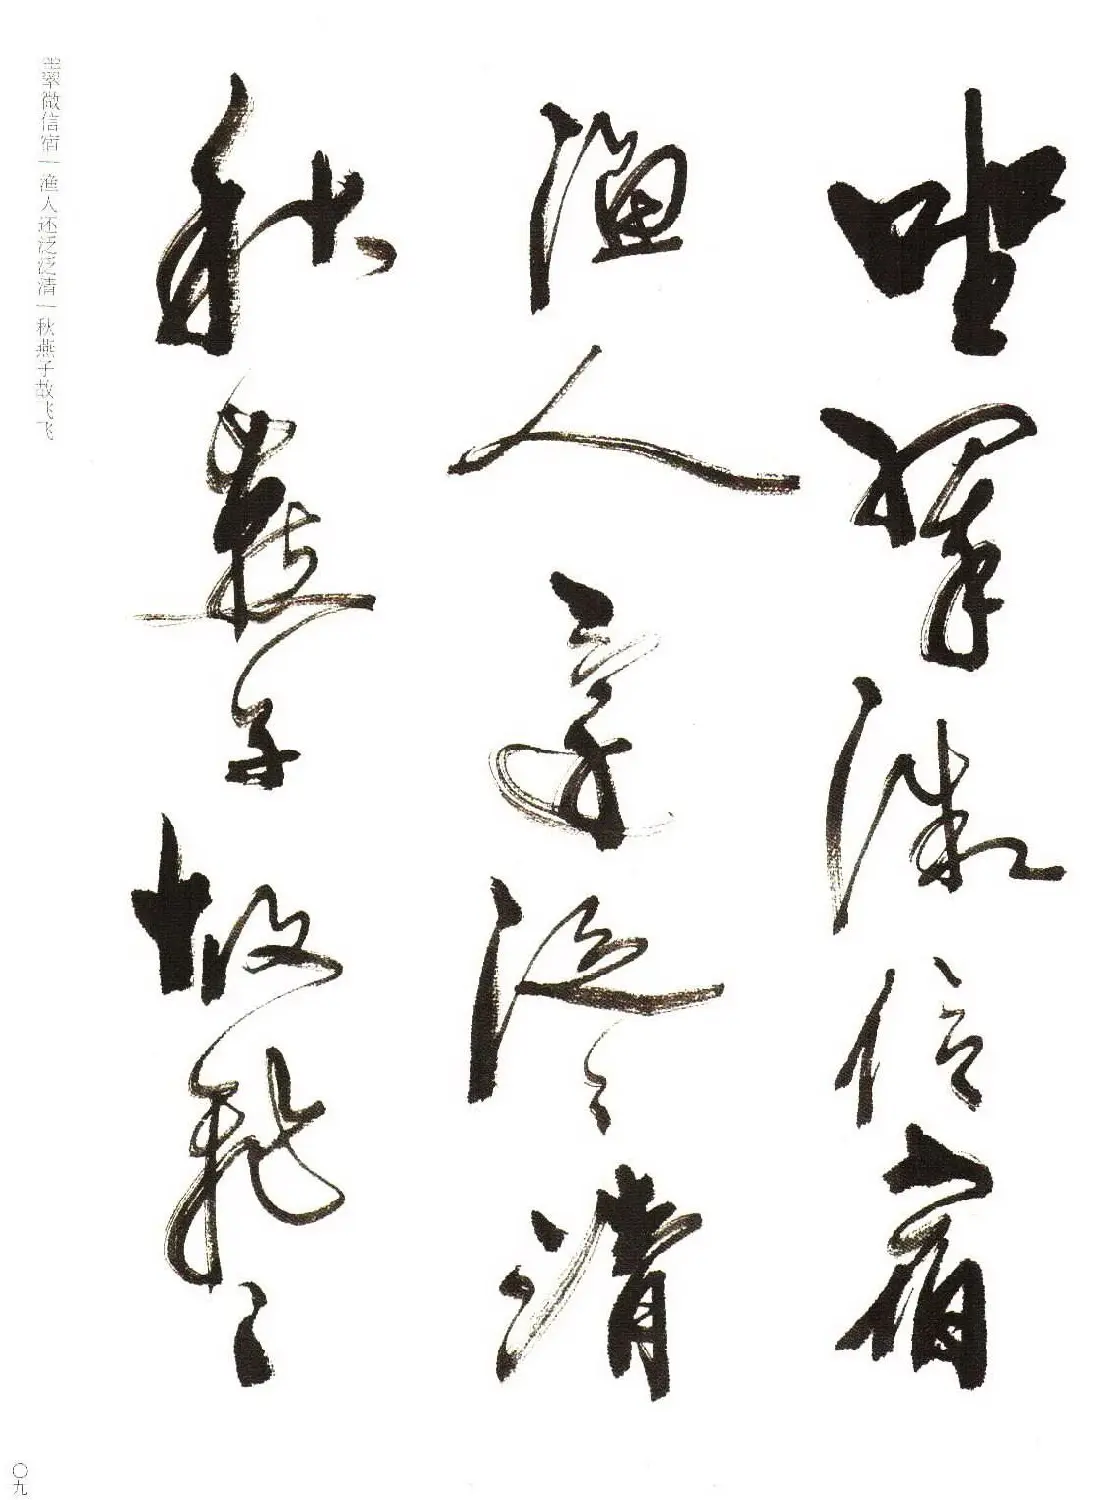 坐翠微信宿
渔人还泛泛清
秋燕子故飞飞
坐翠微信宿|渔人还泛泛清|秋燕子故飞飞
〇九